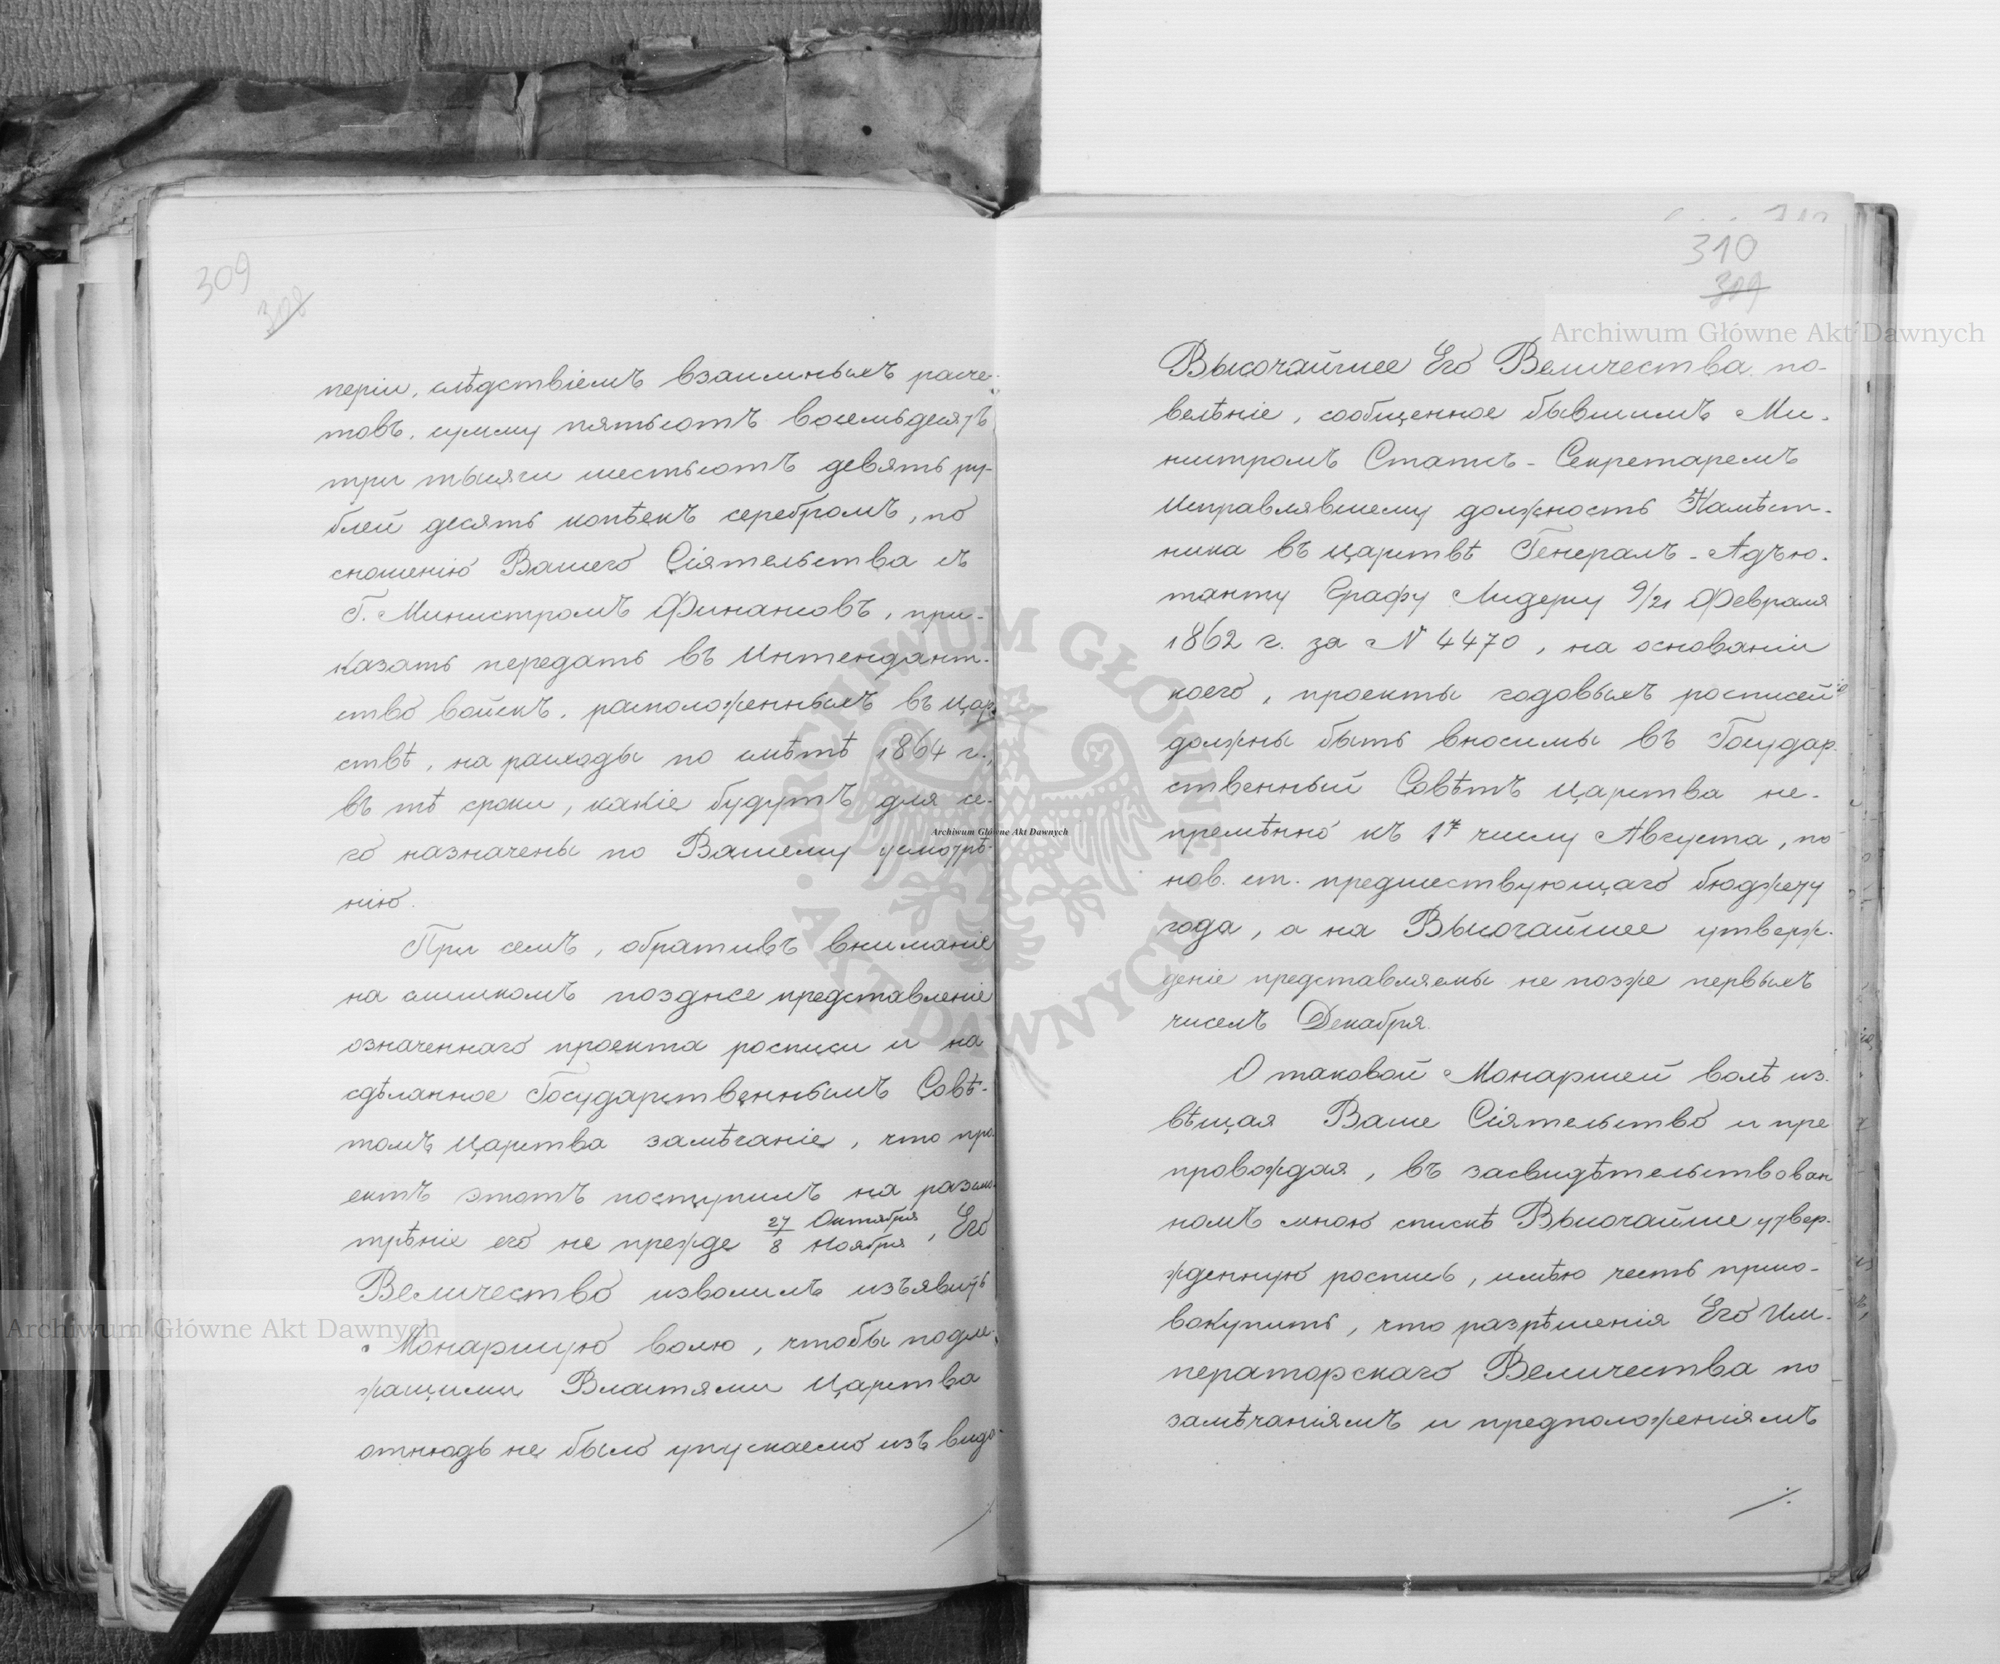 309
308
періи, слѣдствіемъ взаимныхъ расче-
товъ, сумму пятьсотъ восемьдесятъ
три тысячи шестьсотъ девять ру-
блей десять копѣекъ серебромъ, по
сношенію Вашего Сіятельства съ
Г. Министромъ Финансовъ, при-
казать передать въ Интендант-
ство войскъ, расположенныхъ въ Цар-
ствѣ, на расходы по смѣтѣ 1864 г.,
въ тѣ сроки, какіе будутъ для се-
го назначены по Вашему усмотрѣ-
нію.
При семъ, обративъ вниманіе
на слишкомъ позднее представленіе
означеннаго проекта росписи и на
сдѣланное Государственнымъ Совѣ-
томъ Царства замѣчаніе, что про-
ектъ этотъ поступилъ на разсмо-
трѣніе его не прежде 27 Октября / 8 Ноября, Его
Величество изволилъ изъявить
Монаршую волю, чтобы подле-
жащими Властями Царства
отнюдь не было упускаемо изъ виду
310
309
Высочайшее Его Величества по-
велѣніе, сообщенное бывшимъ Ми-
нистромъ Статсъ-Секретаремъ
Исправлявшему должность Намѣст-
ника въ Царствѣ Генералъ-Адъю-
танту Графу Лидерсу 9/21 Февраля
1862 г. за № 4470, на основаніи
коего, проекты годовыхъ росписей
должны быть вносимы въ Государ-
ственный Совѣтъ Царства не-
премѣнно къ 1му числу Августа, по
нов. ст. предшествующаго бюджету
года, а на Высочайшее утверж-
деніе представляемы не позже первыхъ
чиселъ Декабря.
О таковой Монаршей волѣ из-
вѣщая Ваше Сіятельство и пре-
провождая, въ засвидѣтельствован-
номъ мною спискѣ Высочайше утвер-
жденную роспись, имѣю честь присо-
вокупить, что разрѣшенія Его Им-
ператорскаго Величества по
замѣчаніямъ и предположеніямъ
./.
Archiwum Główne Akt Dawnych
Archiwum Główne Akt Dawnych
Archiwum Główne Akt Dawnych
ARCHIWUM GŁÓWNE · AKT DAWNYCH ·